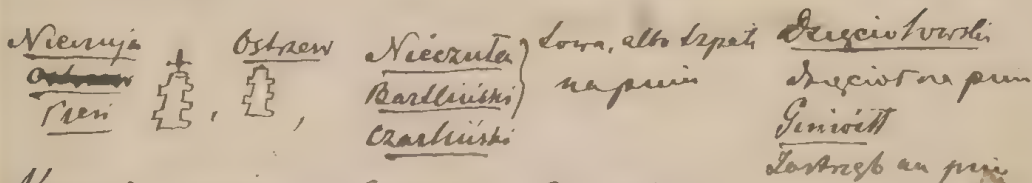 Nieczuja
Ostrzew
Pień
Ostrzew
Nieczuła
Bartliński
Czarliński
Sowa, albo Szpak
na pniu
Dzięciołowski
dzięcioł na pniu
Giniwiłł
Jastrząb na pniu